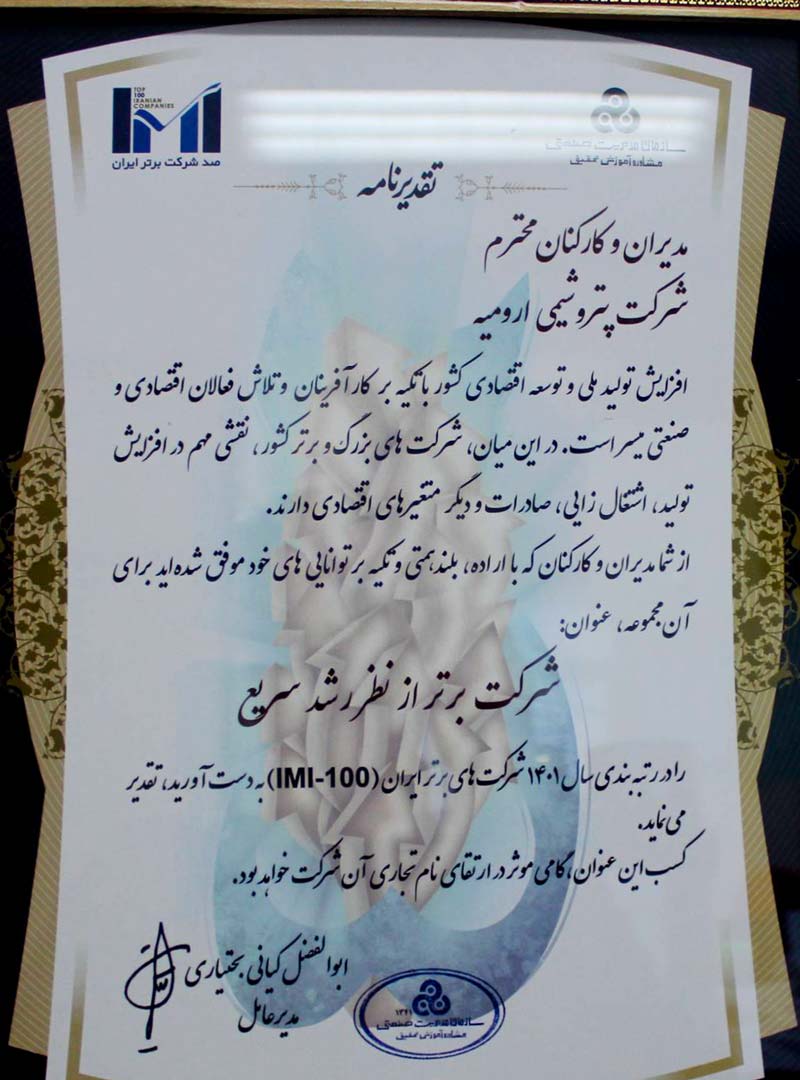 TOP
100
IRANIAN
COMPANIES
IMI
صد شرکت برتر ایران
سازمان مدیریت صنعتی
مشاوره آموزش تحقیق
تقدیرنامه
مدیران و کارکنان محترم
شرکت پتروشیمی ارومیه
افزایش تولید ملی و توسعه اقتصادی کشور با تکیه بر کارآفرینان و تلاش فعالان اقتصادی و
صنعتی میسر است. در این میان، شرکت های بزرگ و برتر کشور، نقشی مهم در افزایش
تولید، اشتغال زایی، صادرات و دیگر متغیرهای اقتصادی دارند.
از شما مدیران و کارکنان که با اراده، بلندهمتی و تکیه بر توانایی های خود موفق شده اید برای
آن مجموعه، عنوان:
شرکت برتر از نظر رشد سریع
را در رتبه بندی سال ۱۴۰۱ شرکت های برتر ایران (IMI-100) به دست آورید، تقدیر
می نماید.
کسب این عنوان، گامی موثر در ارتقای نام تجاری آن شرکت خواهد بود.
ابوالفضل کیانی بختیاری
مدیرعامل
۱۳۴۱
سازمان مدیریت صنعتی
مشاوره آموزش تحقیق